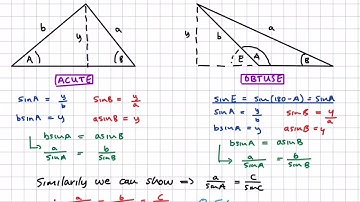 b a
y
A B
ACUTE
sinA = y/b sinB = y/a
bsinA = y asinB = y
bsinA = asinB
a/sinA = b/sinB
y b a
E A B
OBTUSE
sinE = sin(180-A) = sinA
sinA = y/b sinB = y/a
bsinA = y asinB = y
bsinA = asinB
a/sinA = b/sinB
Similarily we can show => a/sinA = c/sinC
a = b = c